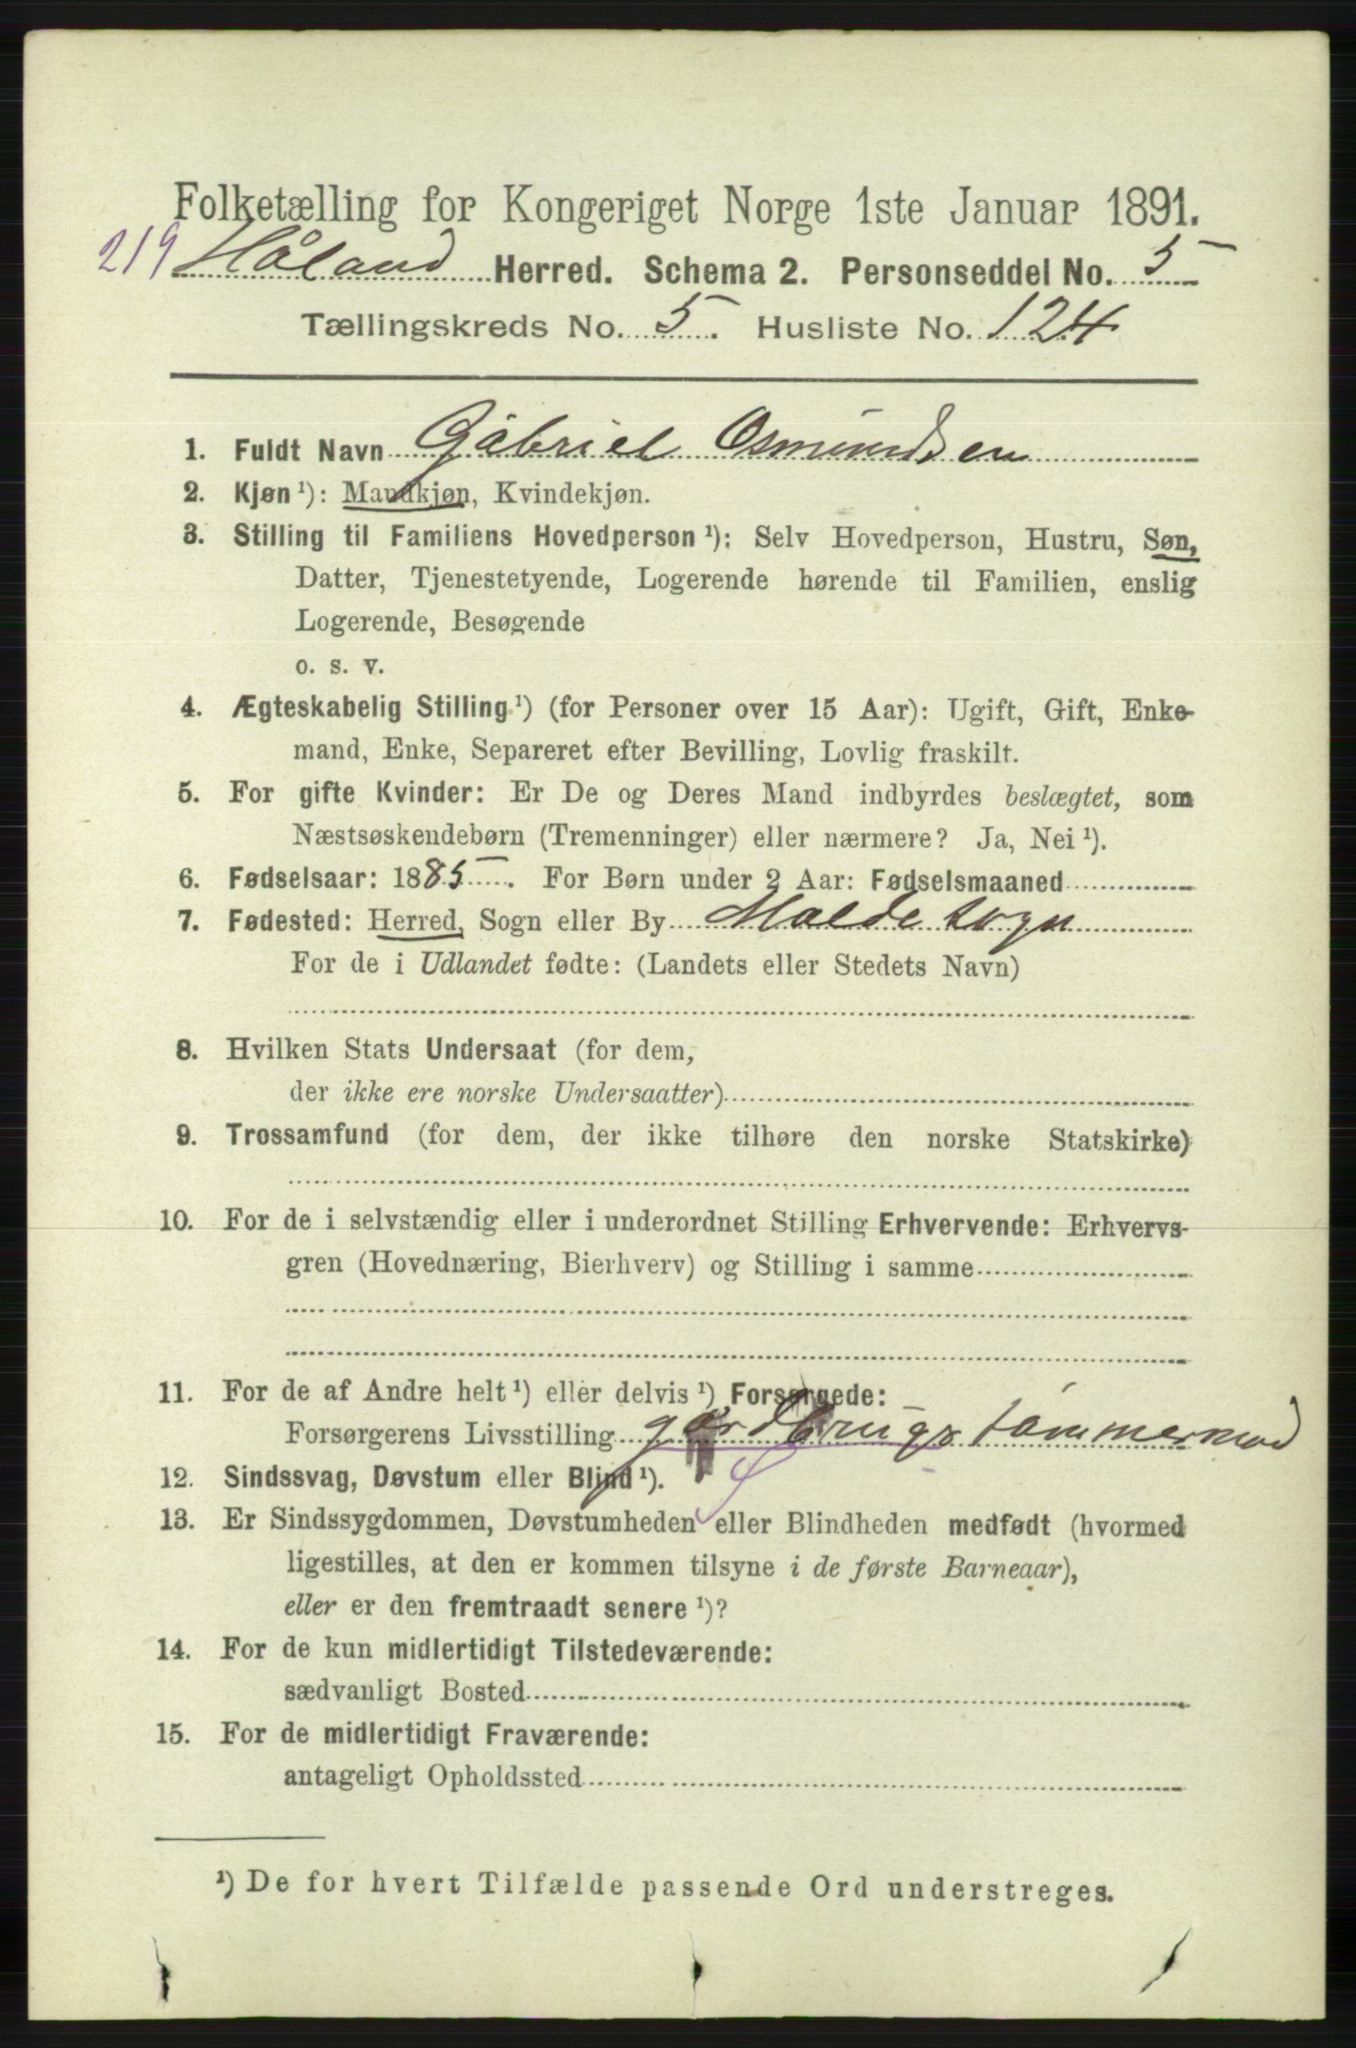 Folketælling for Kongeriget Norge 1ste Januar 1891.
219 Håland Herred. Schema 2. Personseddel No. 5
Tællingskreds No. 5. Husliste No. 124
1. Fuldt Navn Gabriel Osmundsen
2. Kjøn ¹): Mandkjøn, Kvindekjøn.
3. Stilling til Familiens Hovedperson ¹): Selv Hovedperson, Hustru, Søn,
Datter, Tjenestetyende, Logerende hørende til Familien, enslig
Logerende, Besøgende
o. s. v.
4. Ægteskabelig Stilling ¹) (for Personer over 15 Aar): Ugift, Gift, Enke-
mand, Enke, Separeret efter Bevilling, Lovlig fraskilt.
5. For gifte Kvinder: Er De og Deres Mand indbyrdes beslægtet, som
Næstsøskendebørn (Tremenninger) eller nærmere? Ja, Nei ¹).
6. Fødselsaar: 1885. For Børn under 2 Aar: Fødselsmaaned
7. Fødested: Herred, Sogn eller By Malde sogn
For de i Udlandet fødte: (Landets eller Stedets Navn)
8. Hvilken Stats Undersaat (for dem,
der ikke ere norske Undersaatter)
9. Trossamfund (for dem, der ikke tilhøre den norske Statskirke)
10. For de i selvstændig eller i underordnet Stilling Erhvervende: Erhvervs-
gren (Hovednæring, Bierhverv) og Stilling i samme
11. For de af Andre helt ¹) eller delvis ¹) Forsørgede:
Forsørgerens Livsstilling gårdbrugr tømmermad
12. Sindssvag, Døvstum eller Blind ¹).
13. Er Sindssygdommen, Døvstumheden eller Blindheden medfødt (hvormed
ligestilles, at den er kommen tilsyne i de første Barneaar),
eller er den fremtraadt senere ¹)?
14. For de kun midlertidigt Tilstedeværende:
sædvanligt Bosted
15. For de midlertidigt Fraværende:
antageligt Opholdssted
¹) De for hvert Tilfælde passende Ord understreges.